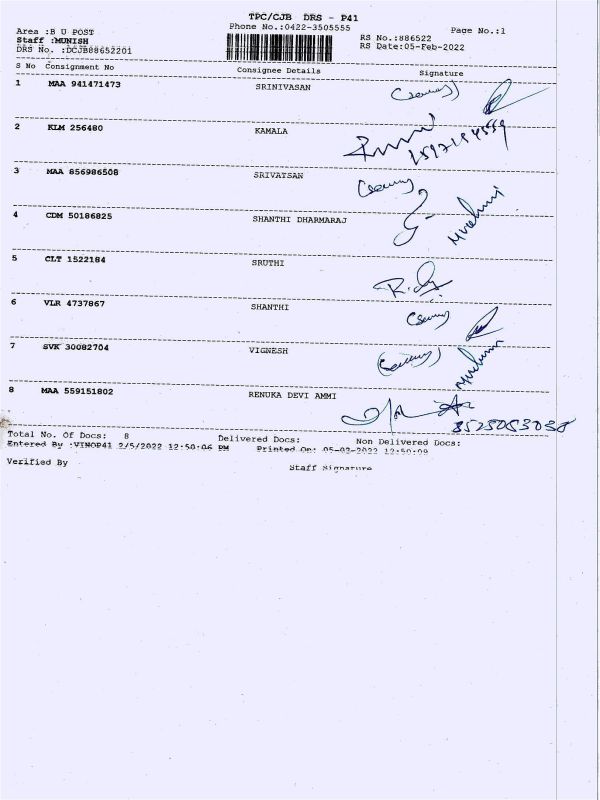 TPC/CJB DRS - P41
Phone No.:0422-3505555
Page No.:1
Area :B U POST
Staff :MUNISH
DRS No. :DCJB88652201
RS No.:886522
RS Date:05-Feb-2022
S No Consignment No Consignee Details Signature
1 MAA 941471473 SRINIVASAN
2 KLM 256480 KAMALA
3 MAA 856986508 SRIVATSAN
4 CDM 50186825 SHANTHI DHARMARAJ
5 CLT 1522184 SRUTHI
6 VLR 4737867 SHANTHI
7 SVK 30082704 VIGNESH
8 MAA 559151802 RENUKA DEVI AMMI
Total No. Of Docs: 8 Delivered Docs: Non Delivered Docs:
Entered By :VINOP41 2/5/2022 12:50:06 PM Printed On: 05-02-2022 12:50:09
Verified By Staff Signature